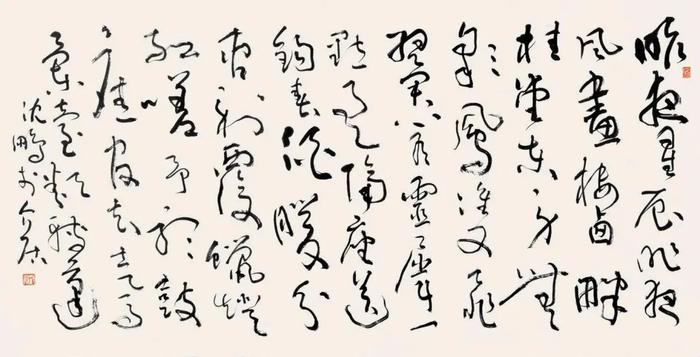 昨夜星辰昨夜
風畫樓西畔
桂堂東身無
彩鳳雙飛
翼心有靈犀一
點通隔座送
鈎春酒暖分
曹射覆蠟燈
紅嗟予聽鼓
應官去走馬
蘭臺類轉蓬
沈鵬於介居